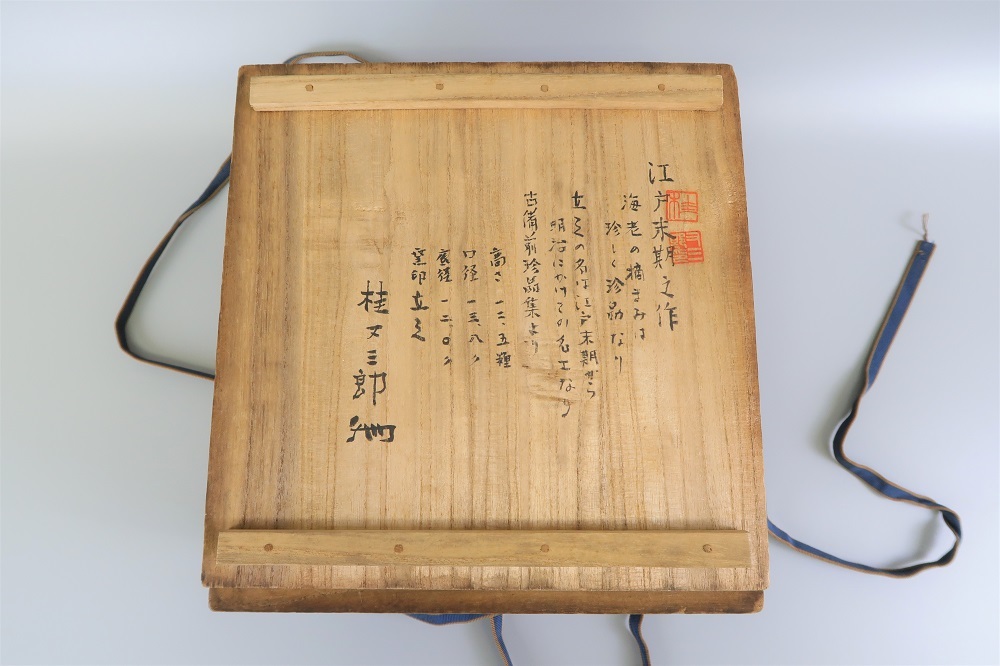 江戸末期之作
海老の摘まみは
珍しく珍品なり
立之の名は江戸末期から
明治にかけての名工なり
古備前珍品集より
高さ 一二、五糎
口径 一三、八〃
底径 一二、〇〃
窯印 立之
桂又三郎